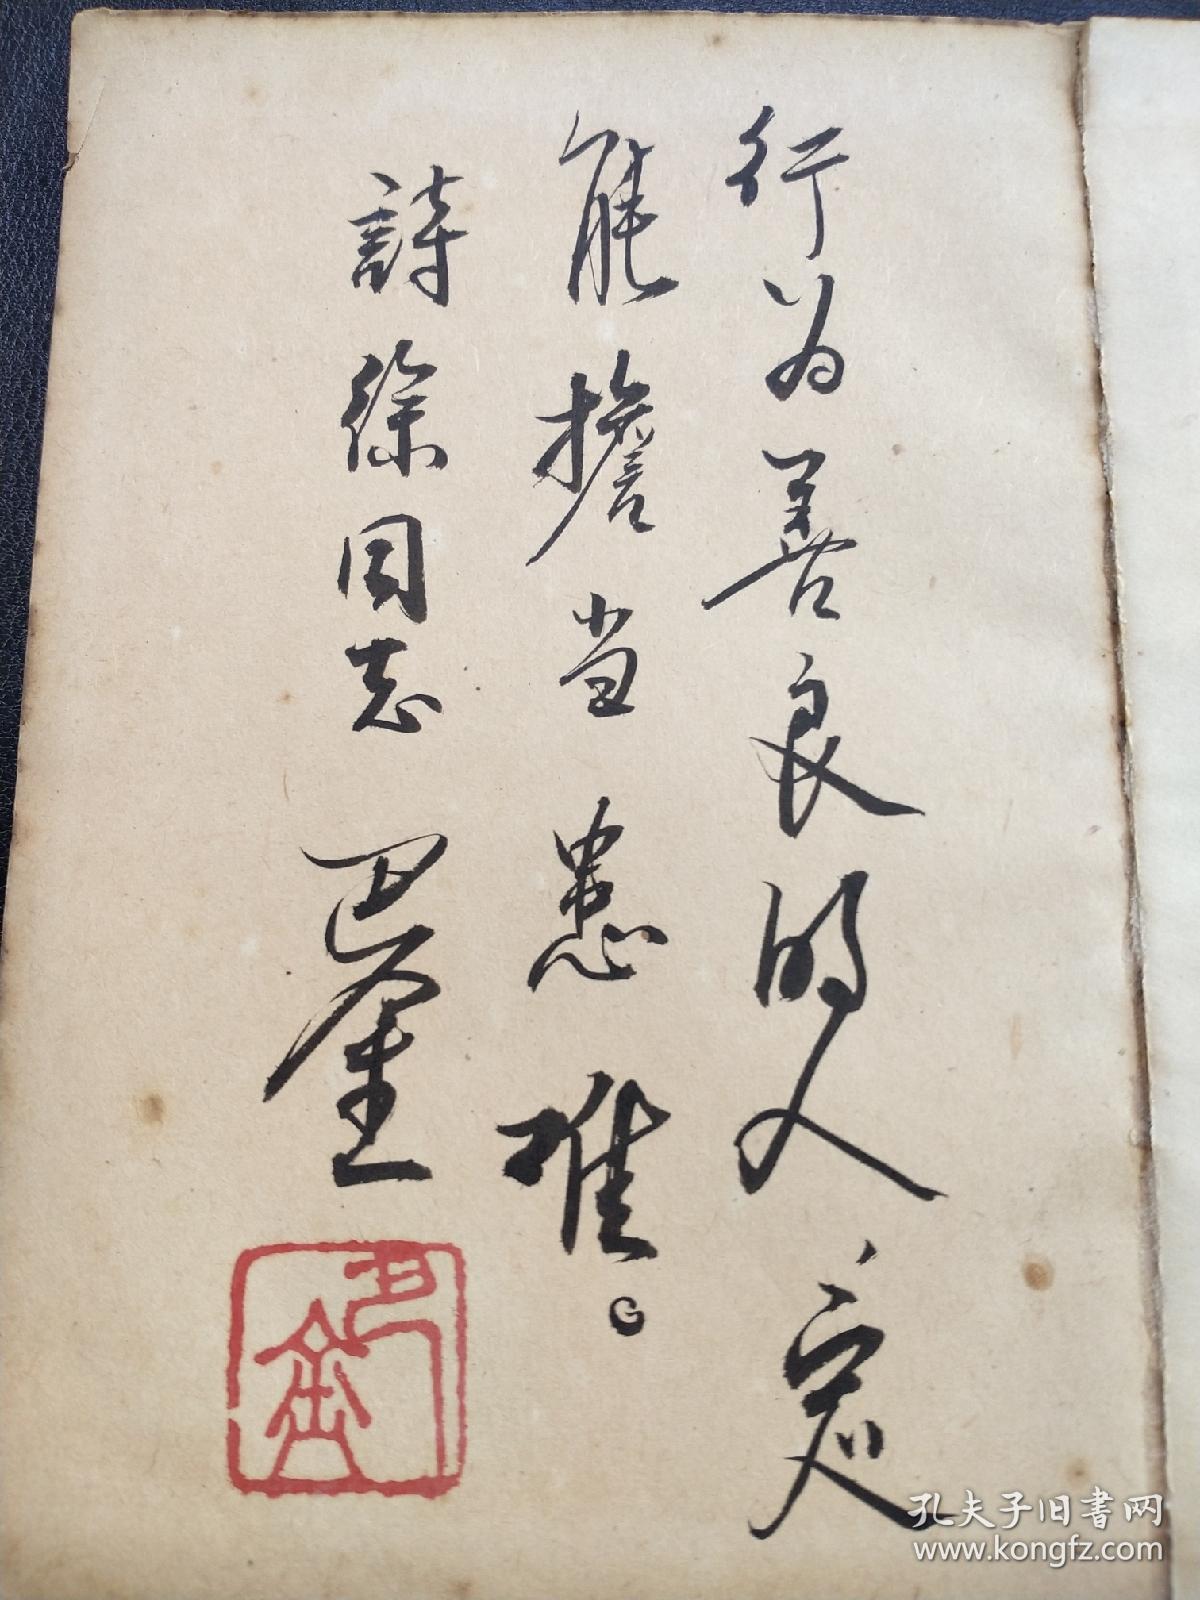 行为善良的人，定
能擔当患难。
詩徐同志
巴金
巴金
孔夫子旧書网
www.kongfz.com